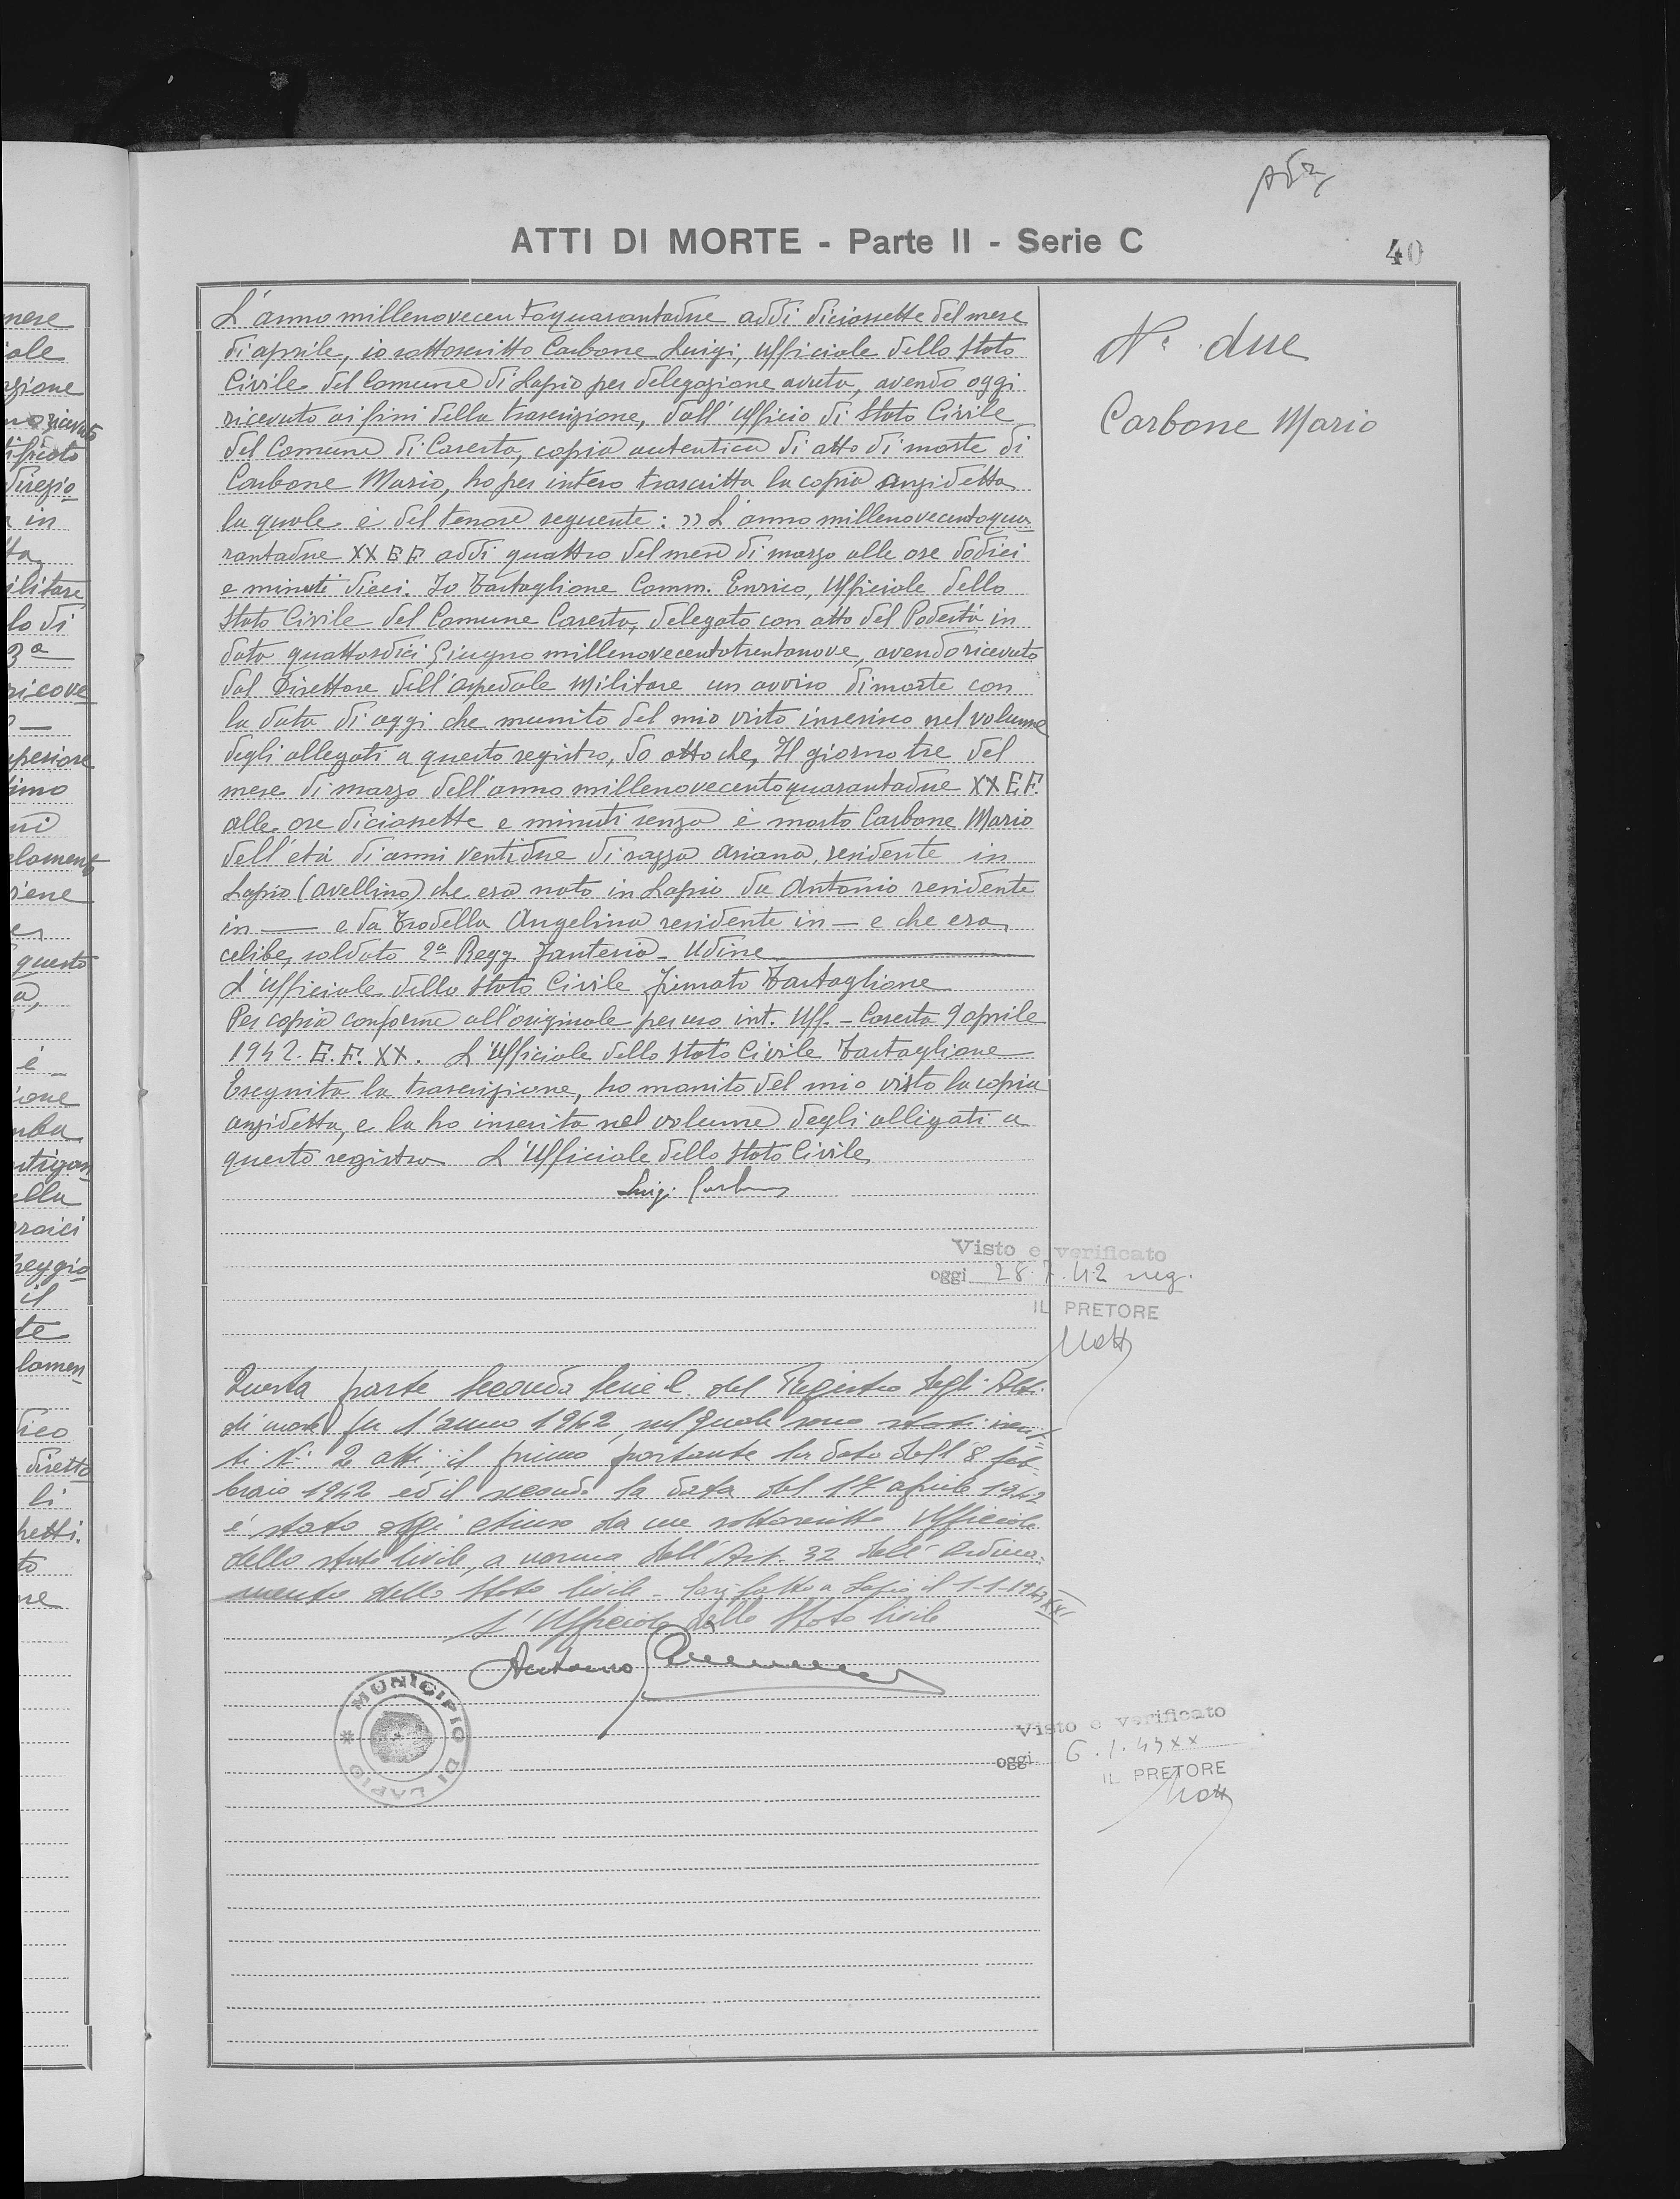 ATTI DI MORTE - Parte II - Serie C
40
N° due
Carbone Mario
L'anno millenovecentoquarantadue addì diciassette del mese
di aprile, io sottoscritto Carbone Luigi, Ufficiale dello Stato
Civile del Comune di Lapio per delegazione avuta, avendo oggi
ricevuto ai fini della trascrizione, dall'Ufficio di Stato Civile
del Comune di Caserta, copia autentica di atto di morte di
Carbone Mario, ho per intero trascritta la copia anzidetta
la quale è del tenore seguente: » L'anno millenovecentoqua
rantadue XX E F addì quattro del mese di marzo alle ore dodici
e minuti dieci. Io Tartaglione Comm. Enrico, Ufficiale dello
Stato Civile del Comune Caserta, delegato con atto del Podestà in
data quattordici Giugno millenovecentotrentanove, avendo ricevuto
dal Direttore dell'Ospedale Militare un avviso di morte con
la data di oggi che munito del mio visto inserisco nel volume
degli allegati a questo registro, do atto che, Il giorno tre del
mese di marzo dell'anno millenovecentoquarantadue XX E.F.
alle ore diciassette e minuti senza è morto Carbone Mario
dell'età di anni ventidue di razza ariana, residente in
Lapio (Avellino) che era nato in Lapio da Antonio residente
in — e da Trodella Angelina residente in — e che era
celibe, soldato 2ª Regg. Fanteria - Udine
L'Ufficiale dello Stato Civile firmato Tartaglione
Per copia conforme all'originale per uso int. Uff. - Caserta 9 aprile
1942. E.F. XX. L'Ufficiale dello Stato Civile Tartaglione
Eseguita la trascrizione, ho munito del mio visto la copia
anzidetta, e la ho inserita nel volume degli alligati a
questo registro L'Ufficiale dello Stato Civile
Luigi Carbone
Visto e verificato
oggi 28.7.42 reg.
IL PRETORE
Questa parte Seconda Serie C. del Registro degli Atti
di morte per l'anno 1942, sul quale sono stati inscrit
ti N° 2 atti, il primo portante la data dell'8 feb
braio 1942 ed il secondo la data del 17 aprile 1942
è stato oggi chiuso da me sottoscritto Ufficiale
dello stato civile, a norma dell'Art. 32 dell'Ordina=
mento dello Stato Civile - Lapio il 1-1-1943 XXI
L'Ufficiale dello Stato Civile
Antonio
MUNICIPIO DI LAPIO
Visto e verificato
oggi 6.1.43 XX
IL PRETORE